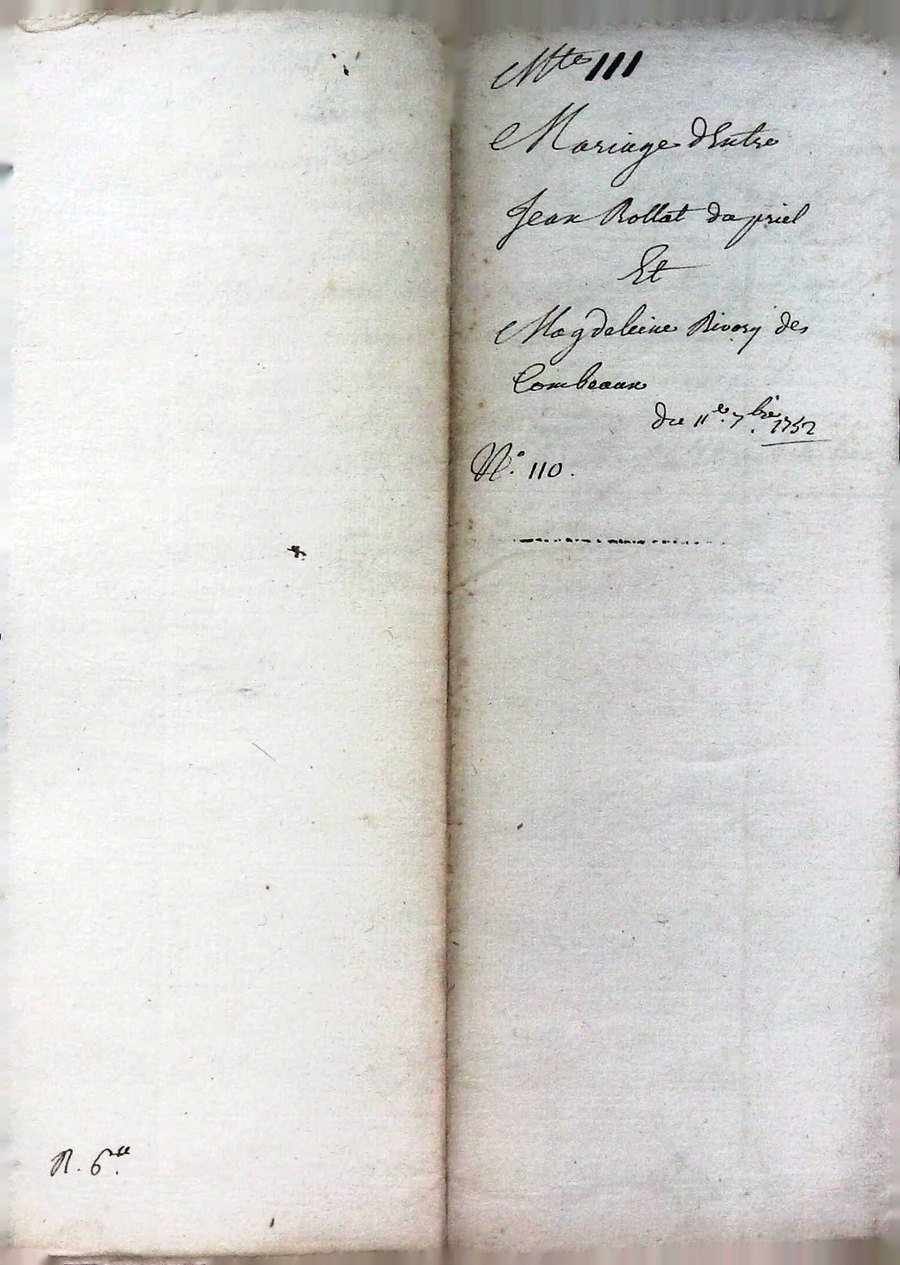 Mte 111
Mariage dEntre
Jean Rollat du priel
Et
Magdeleine Rivory des
Combeaux
du 11e. 7bre. 1752
N.° 110.
R. 6.tt